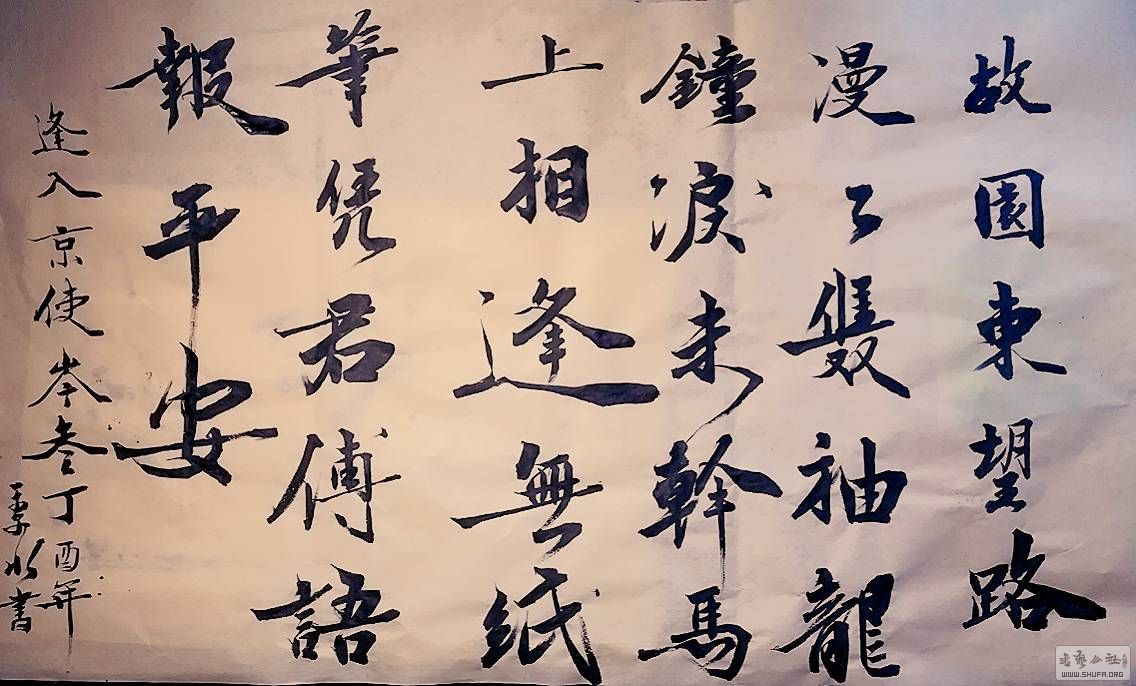 故園東望路
漫々雙袖龍
鐘淚未幹馬
上相逢無紙
筆凭君傅語
報平安
逢入京使岑參丁酉年
書
书艺公社
WWW.SHUFA.ORG